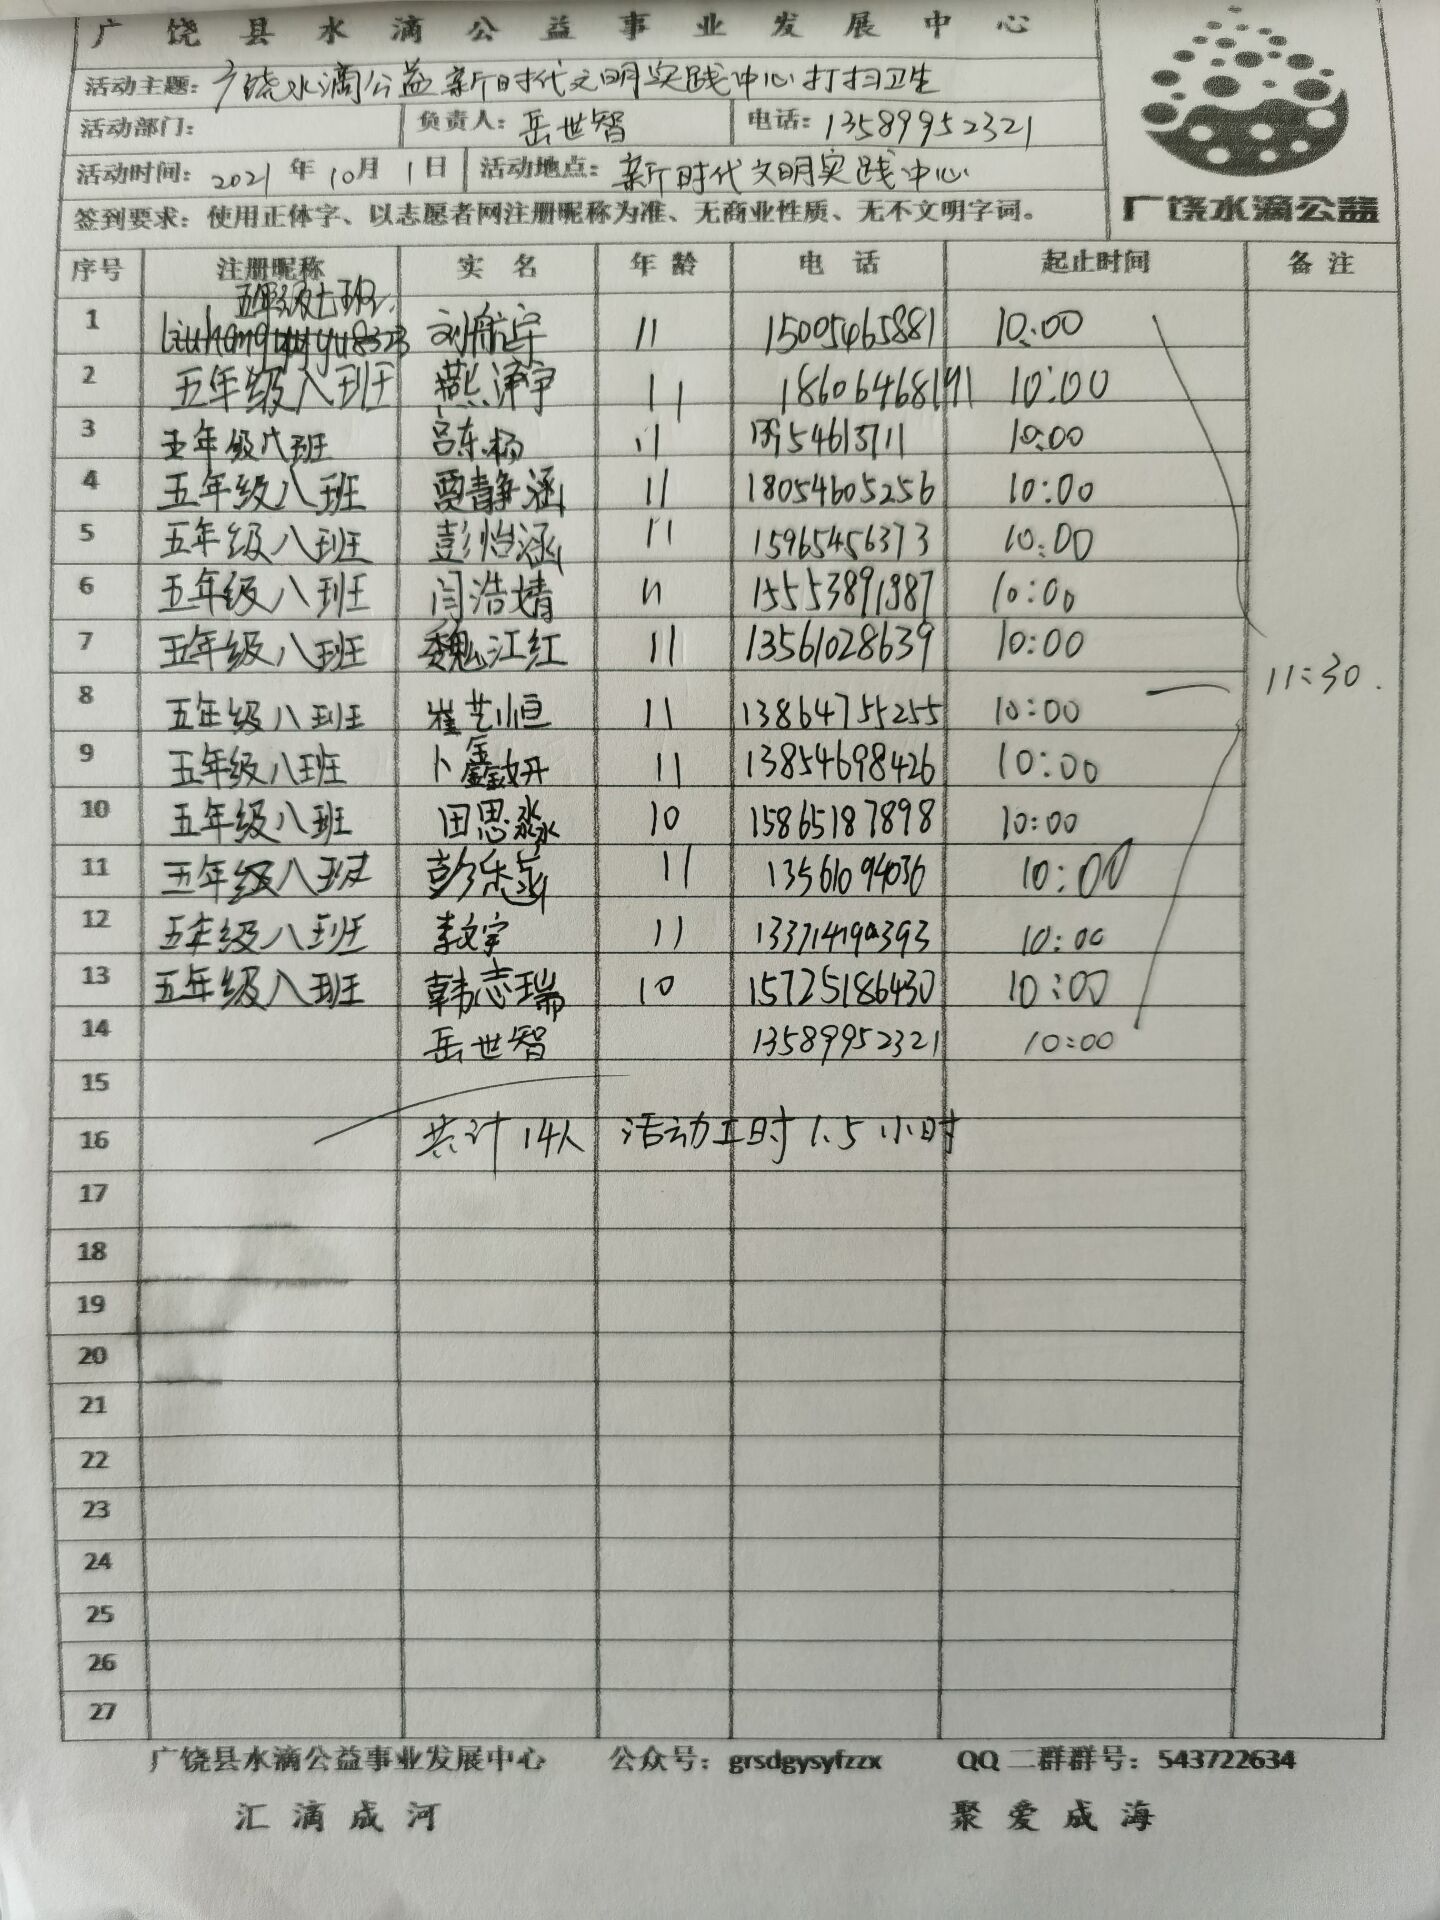 广饶县水滴公益事业发展中心
活动主题：广饶水滴公益新时代文明实践中心打扫卫生
活动部门： 负责人：岳世智 电话：13589952321
活动时间：2021年10月1日 活动地点：新时代文明实践中心
签到要求：使用正体字、以志愿者网注册昵称为准、无商业性质、无不文明字词。
广饶水滴公益
序号 注册昵称 实名 年龄 电话 起止时间 备注
1 五年级七班 刘航宇 11 15005465881 10:00
2 五年级八班 燕 11 18606468191 10:00
3 五年级八班 吕东杨 11 10:00
4 五年级八班 贾静涵 11 18054605256 10:00
5 五年级八班 彭怡涵 11 15965456373 10:00
6 五年级八班 闫浩婧 11 15553891987 10:00
7 五年级八班 魏江红 11 13561028639 10:00
11:30.
8 五年级八班 崔艺恒 11 13864755255 10:00
9 五年级八班 卜鑫妍 11 13854698426 10:00
10 五年级八班 田思淼 10 15865187898 10:00
11 五年级八班 彭乐 11 13561094036 10:00
12 五年级八班 李文宇 11 10:00
13 五年级八班 韩志瑞 10 15725186430 10:00
14 岳世智 13589952321 10:00
15
16 共计14人 活动工时1.5小时
17
18
19
20
21
22
23
24
25
26
27
广饶县水滴公益事业发展中心 公众号：grsdgysyfzzx QQ二群群号：543722634
汇滴成河 聚爱成海